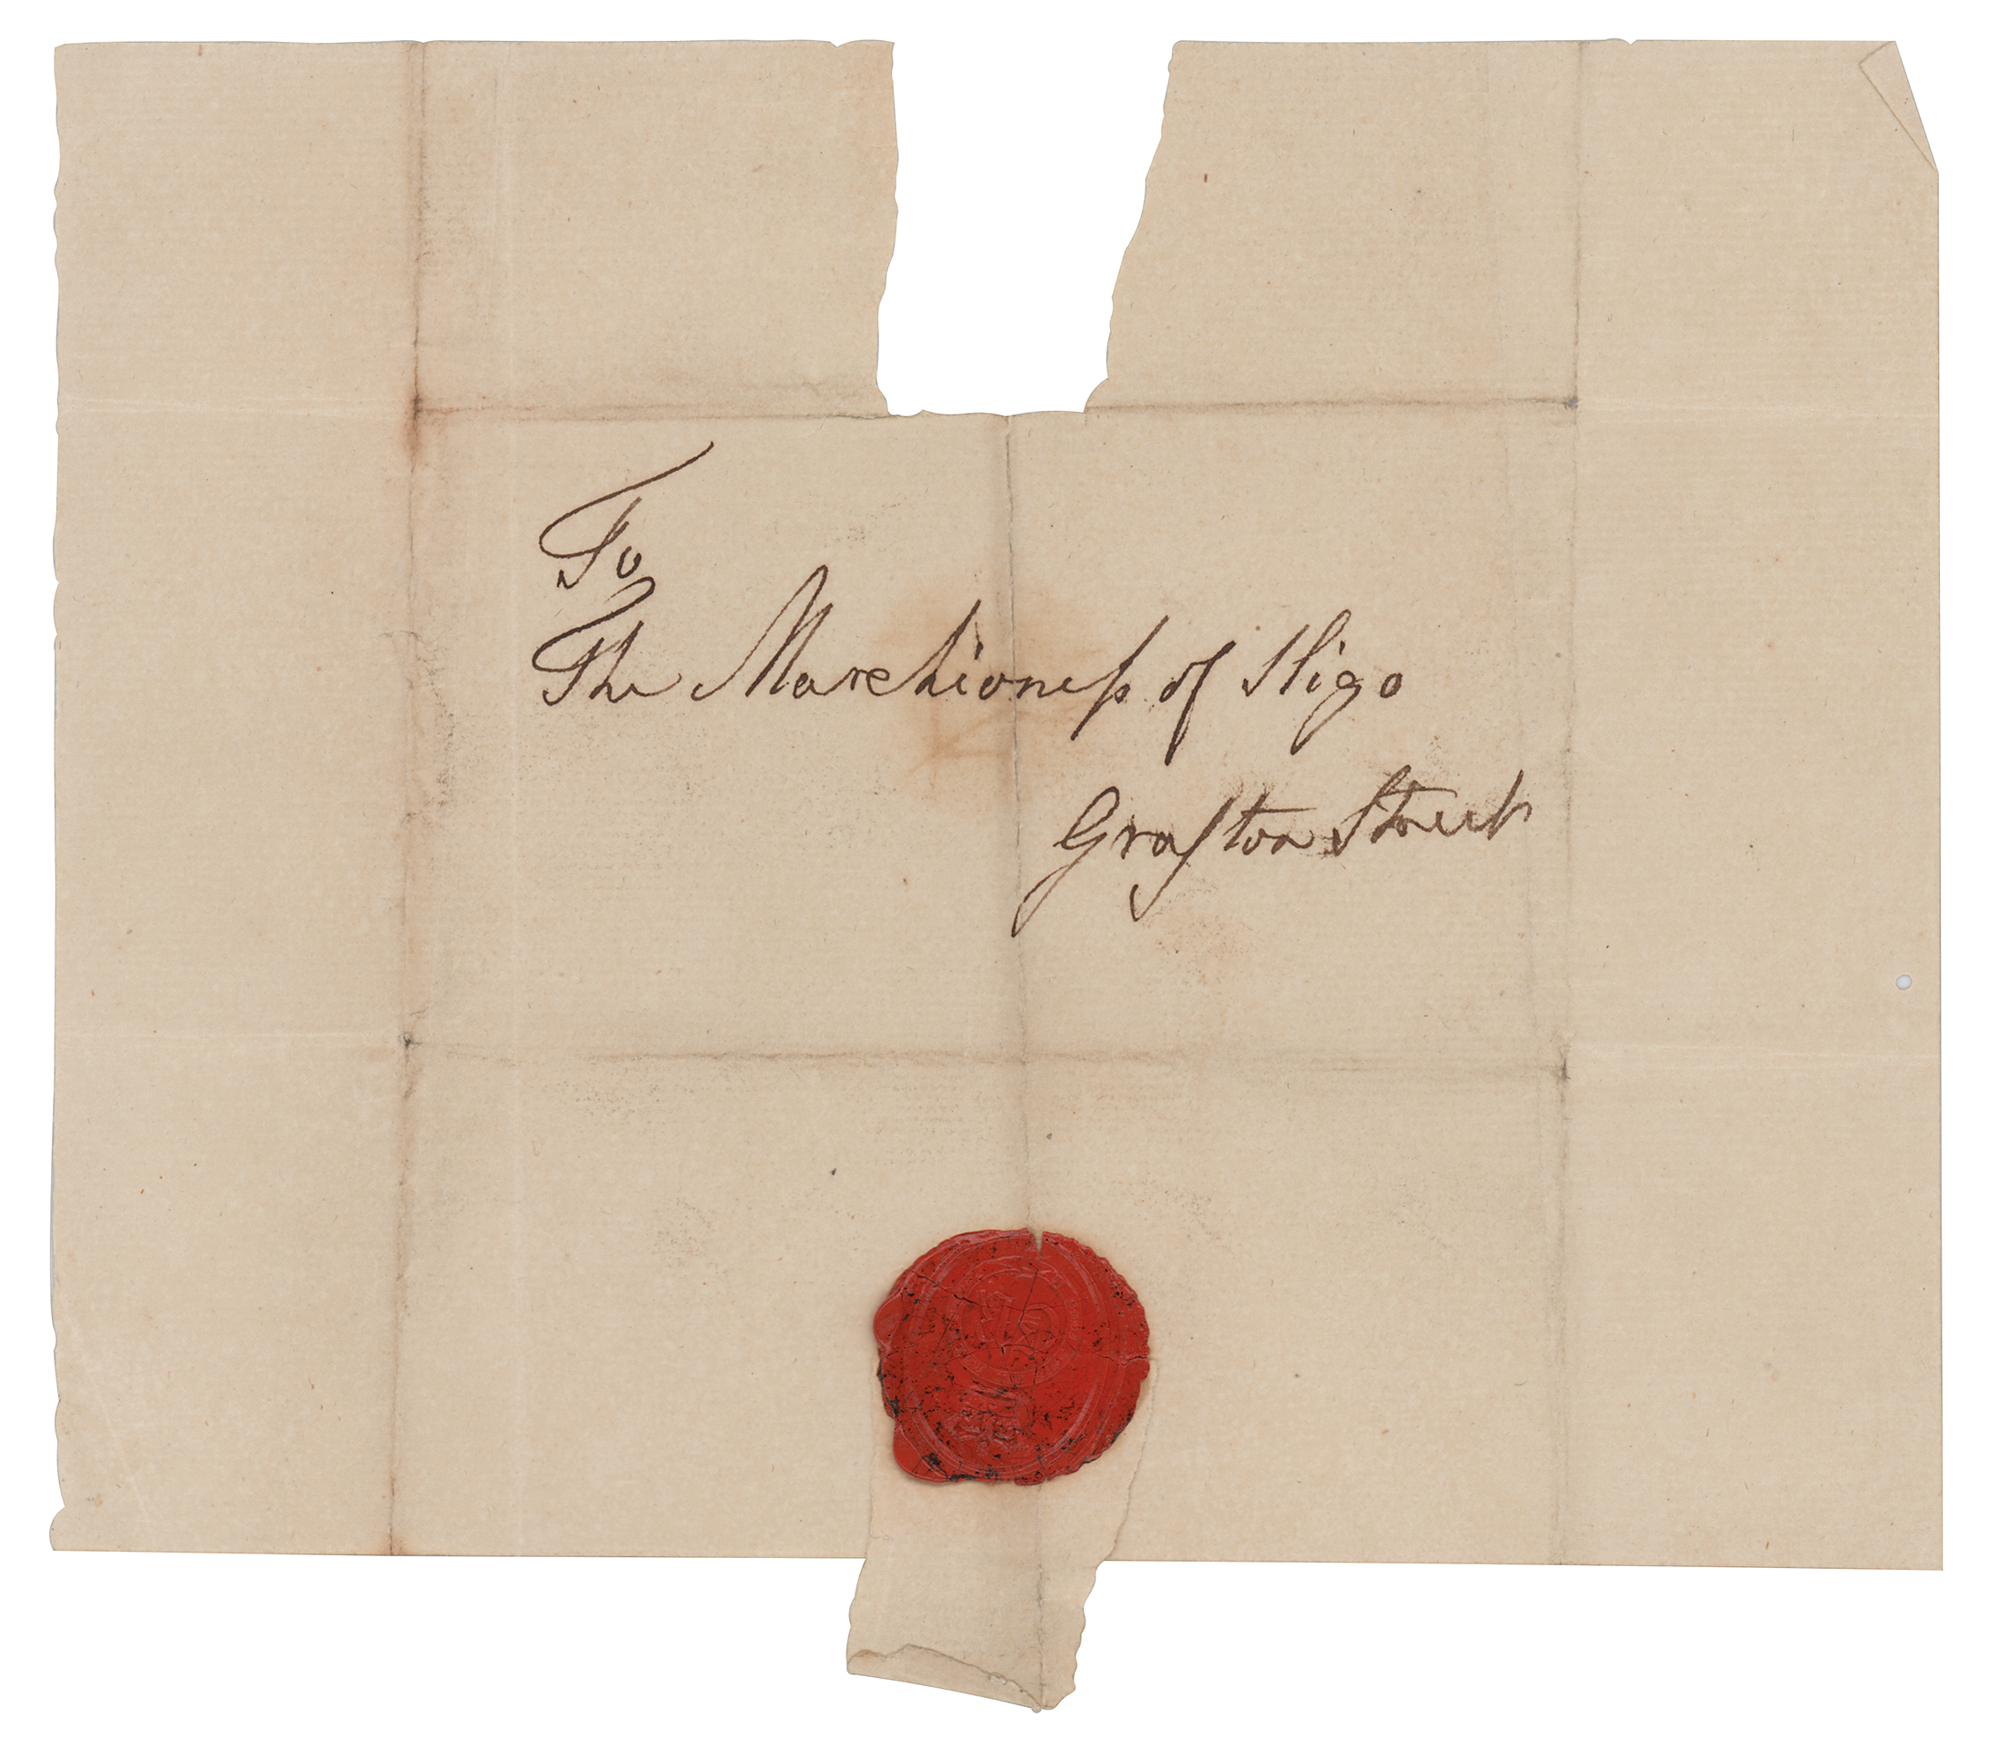 To
The Marchioneſs of Sligo
Grafton Street